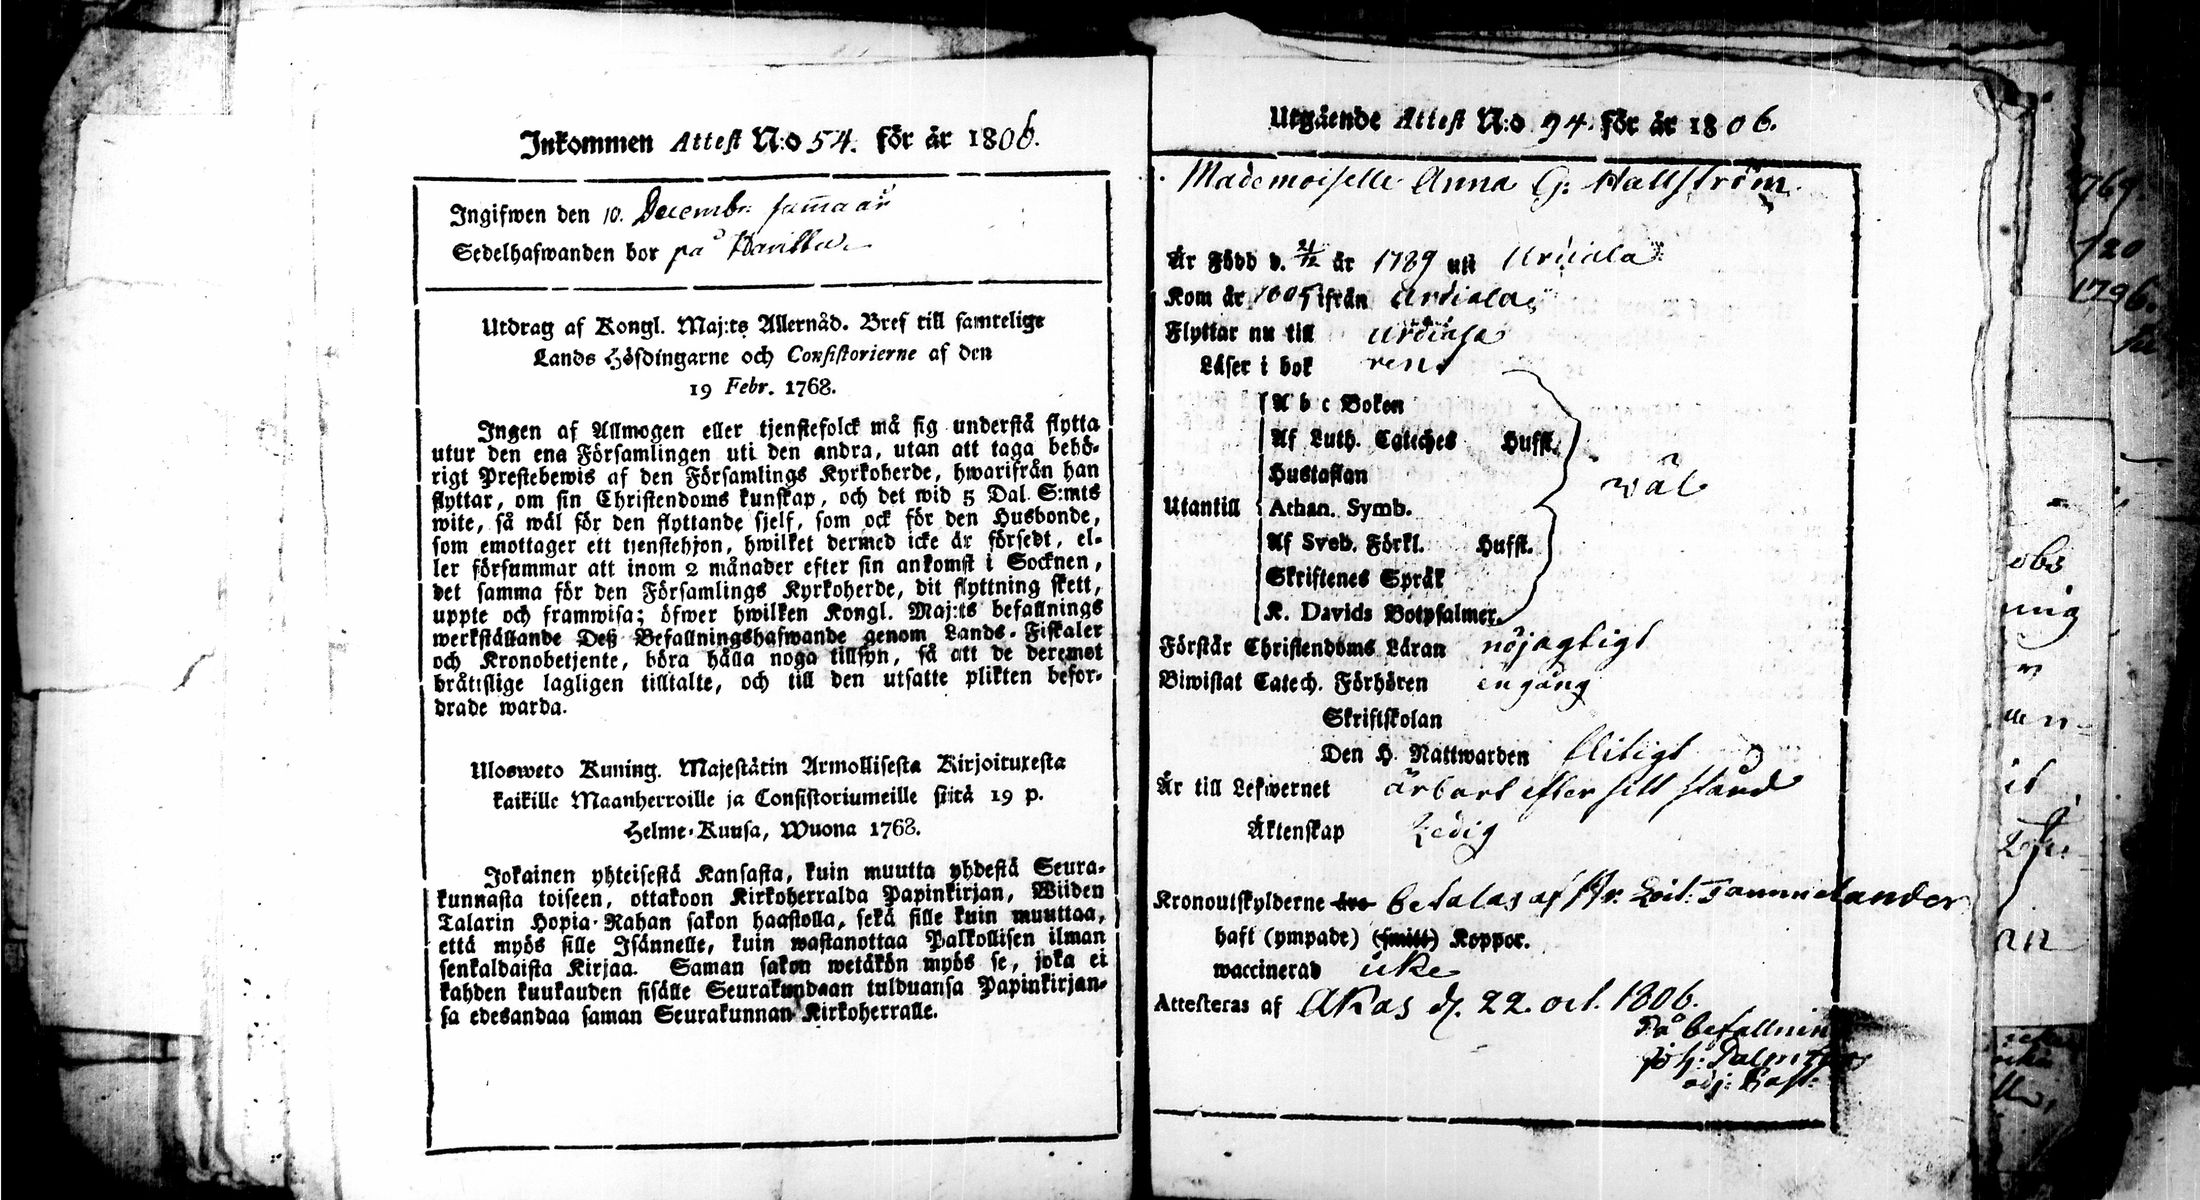 Inkommen Attest N:o 54. för år 1806.
Ingifwen den 10. Decembr. samma år
Sedelhafwanden bor på
Utdrag af Kongl. Maj:ts Allernåd. Bref till samtelige
Lands Höfdingarne och Consistorierne af den
19 Febr. 1768.
Ingen af Allmogen eller tjenstefolck må sig understå flytta
utur den ena Församlingen uti den andra, utan att taga behö-
rigt Prestebewis af den Församlings Kyrkoherde, hwarifrån han
flyttar, om sin Christendoms kunskap, och det wid 5 Dal. S:mts
wite, så wäl för den flyttande sjelf, som ock för den Husbonde,
som emottager ett tjenstehjon, hwilket dermed icke är försedt, el-
ler försummar att inom 2 månader efter sin ankomst i Socknen,
det samma för den Församlings Kyrkoherde, dit flyttning skett,
uppte och framwisa; öfwer hwilken Kongl. Maj:ts befallnings
werkställande Deß Befallningshafwande genom Lands-Fiskaler
och Kronobetjente, böra hålla noga tillsyn, så att de deremot
bråttslige lagligen tilltalte, och till den utsatte plikten befor-
drade warda.
Ulosweto Kuning. Majestätin Armollisesta Kirjoituxesta
kaikille Maanherroille ja Consistoriumeille siitä 19 p.
Helme-Kuusa, Wuona 1768.
Jokainen yhteisestä Kansasta, kuin muutta yhdestä Seura-
kunnasta toiseen, ottakoon Kirkoherralda Papinkirjan, Wiiden
Talarin Hopia-Rahan sakon haastolla, sekä sille kuin muuttaa,
että myös sille Isännelle, kuin wastanottaa Palkollisen ilman
senkaldaista Kirjaa. Saman sakon wetäkön myös se, joka ei
kahden kuukauden sisälle Seurakundaan tulduansa Papinkirjan-
sa edesandaa saman Seurakunnan Kirkoherralle.
Utgående Attest N:o 94. för år 1806.
Mademoiselle Anna G: Hallström.
Är Född d. 21/12 år 1789 uti Urdiala
Kom år 1805 ifrån Urdiala
Flyttar nu till Urdiala
Läser i bok rent
A b c Boken
Af Luth. Cateches Husst.
Hustaflan
wäl
Utantill Athan. Symb.
Af Sveb. Förkl. Husst.
Skriftenes Språk
K. Davids Botpsalmer.
Förstår Christendoms Läran nöjagtigt
Biwistat Catech. Förhören en gång
Skriftskolan
Den H. Nattwarden flitigt
Är till Lefwernet ärbart efter sitt stånd
Äktenskap Ledig
Kronoutskylderne äro betalas af Hr. Leit: Tammelander
haft (ympade) (smitt) Koppor.
waccinerad icke
Attesteras af Akas d. 22. oct. 1806.
På befallning
adj: Past: